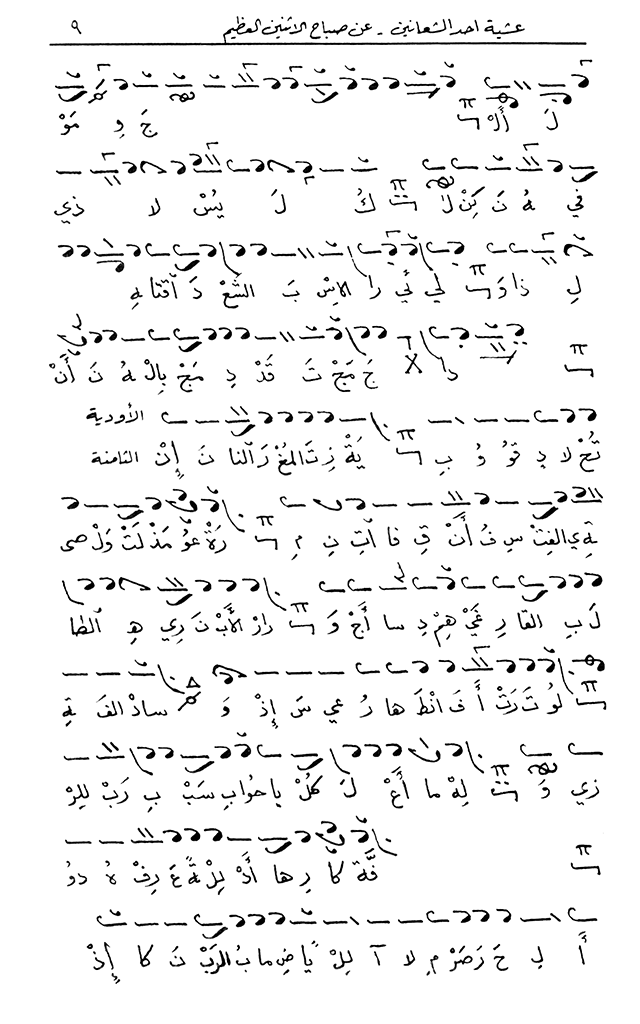 عشية احد الشعانين - عن صباح الاثنين العظيم ٩
لَ أَلْ جَ دِ مَوْ
في هُ نَ كِنْ لَ كُ لَ يْسُ لا ذي
لِ ذا وَ لي ئي را الاِسْ بَ الشَعْ دَ
دا X جَ مَجْ تَ قَدْ دِ مَجْ بِالْ هُ نَ أَنْ
الأودية
تُخْ لا دِ قو وُ بِ يَةْ زِ تَ المُغْ رَ آلنا نَ إِنْ الثامنة
ةِ الفِتْ سِ فُ أَنْ قِ فا آتِ نِ مِ رَةْ مَذْ لَتْ صى
لَ بِ القا رِ غَيْ هِمْ دِ سا أَجْ وَ رارْ الأَبْ نَ ري هِ الطا
لَوُ تَ رَتْ أَ فَ انْطَ ها رُ عي سَ إِذْ وَ سادْ الفَ ةِ
زي وَ لِهْ ما أَعْ لَ كُلْ با حوا بِ سَبْ بِ رَبْ لِلرْ
فَّة كا رِ ها أَدْ لِلْ ةً عَ رِفْ هُ دو
أَ لِ حَ مِ لا آ لِلْ يًا ضِ ما بُ الرَبْ نَ كا إِذْ